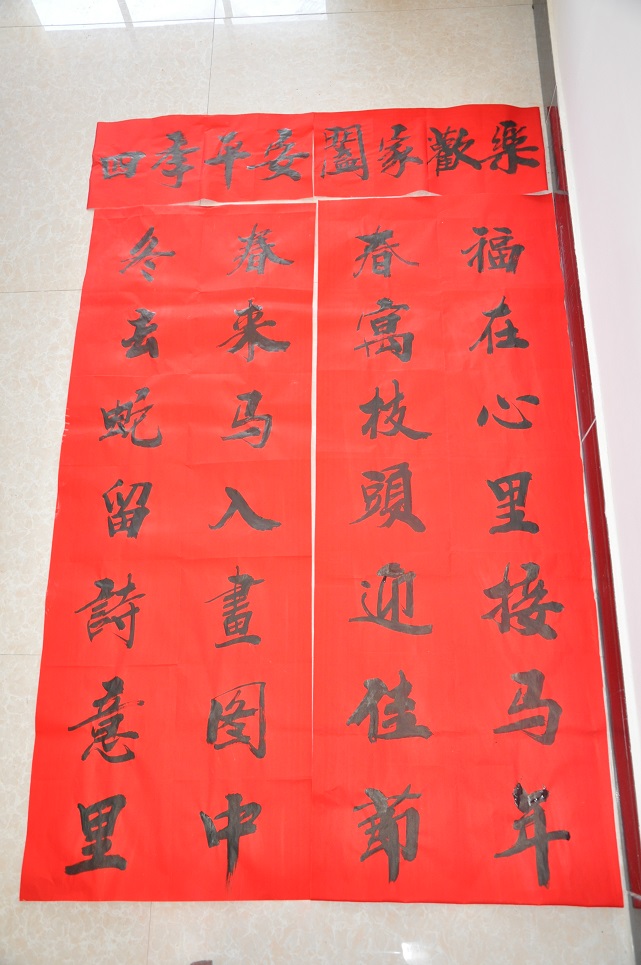 四季平安
闔家歡樂
冬去蛇留詩意里
春来马入畫图中
春寓枝頭迎佳節
福在心里接马年